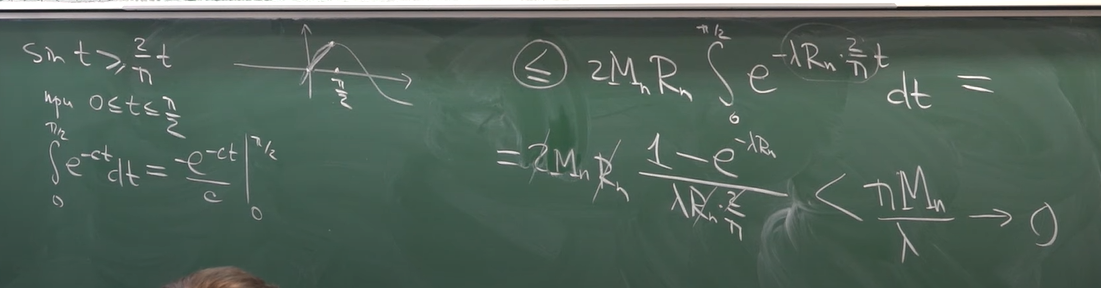 sin t ⩾ 2/π t
при 0 ≤ t ≤ π/2
∫₀^{π/2} e^{-ct} dt = -e^{-ct}/c |₀^{π/2}
π/2
≤ 2MₙRₙ ∫₀^{π/2} e^{-λRₙ·(2/π)t} dt =
= 2MₙRₙ (1 - e^{-λRₙ})/(λRₙ·2/π) < πMₙ/λ → 0